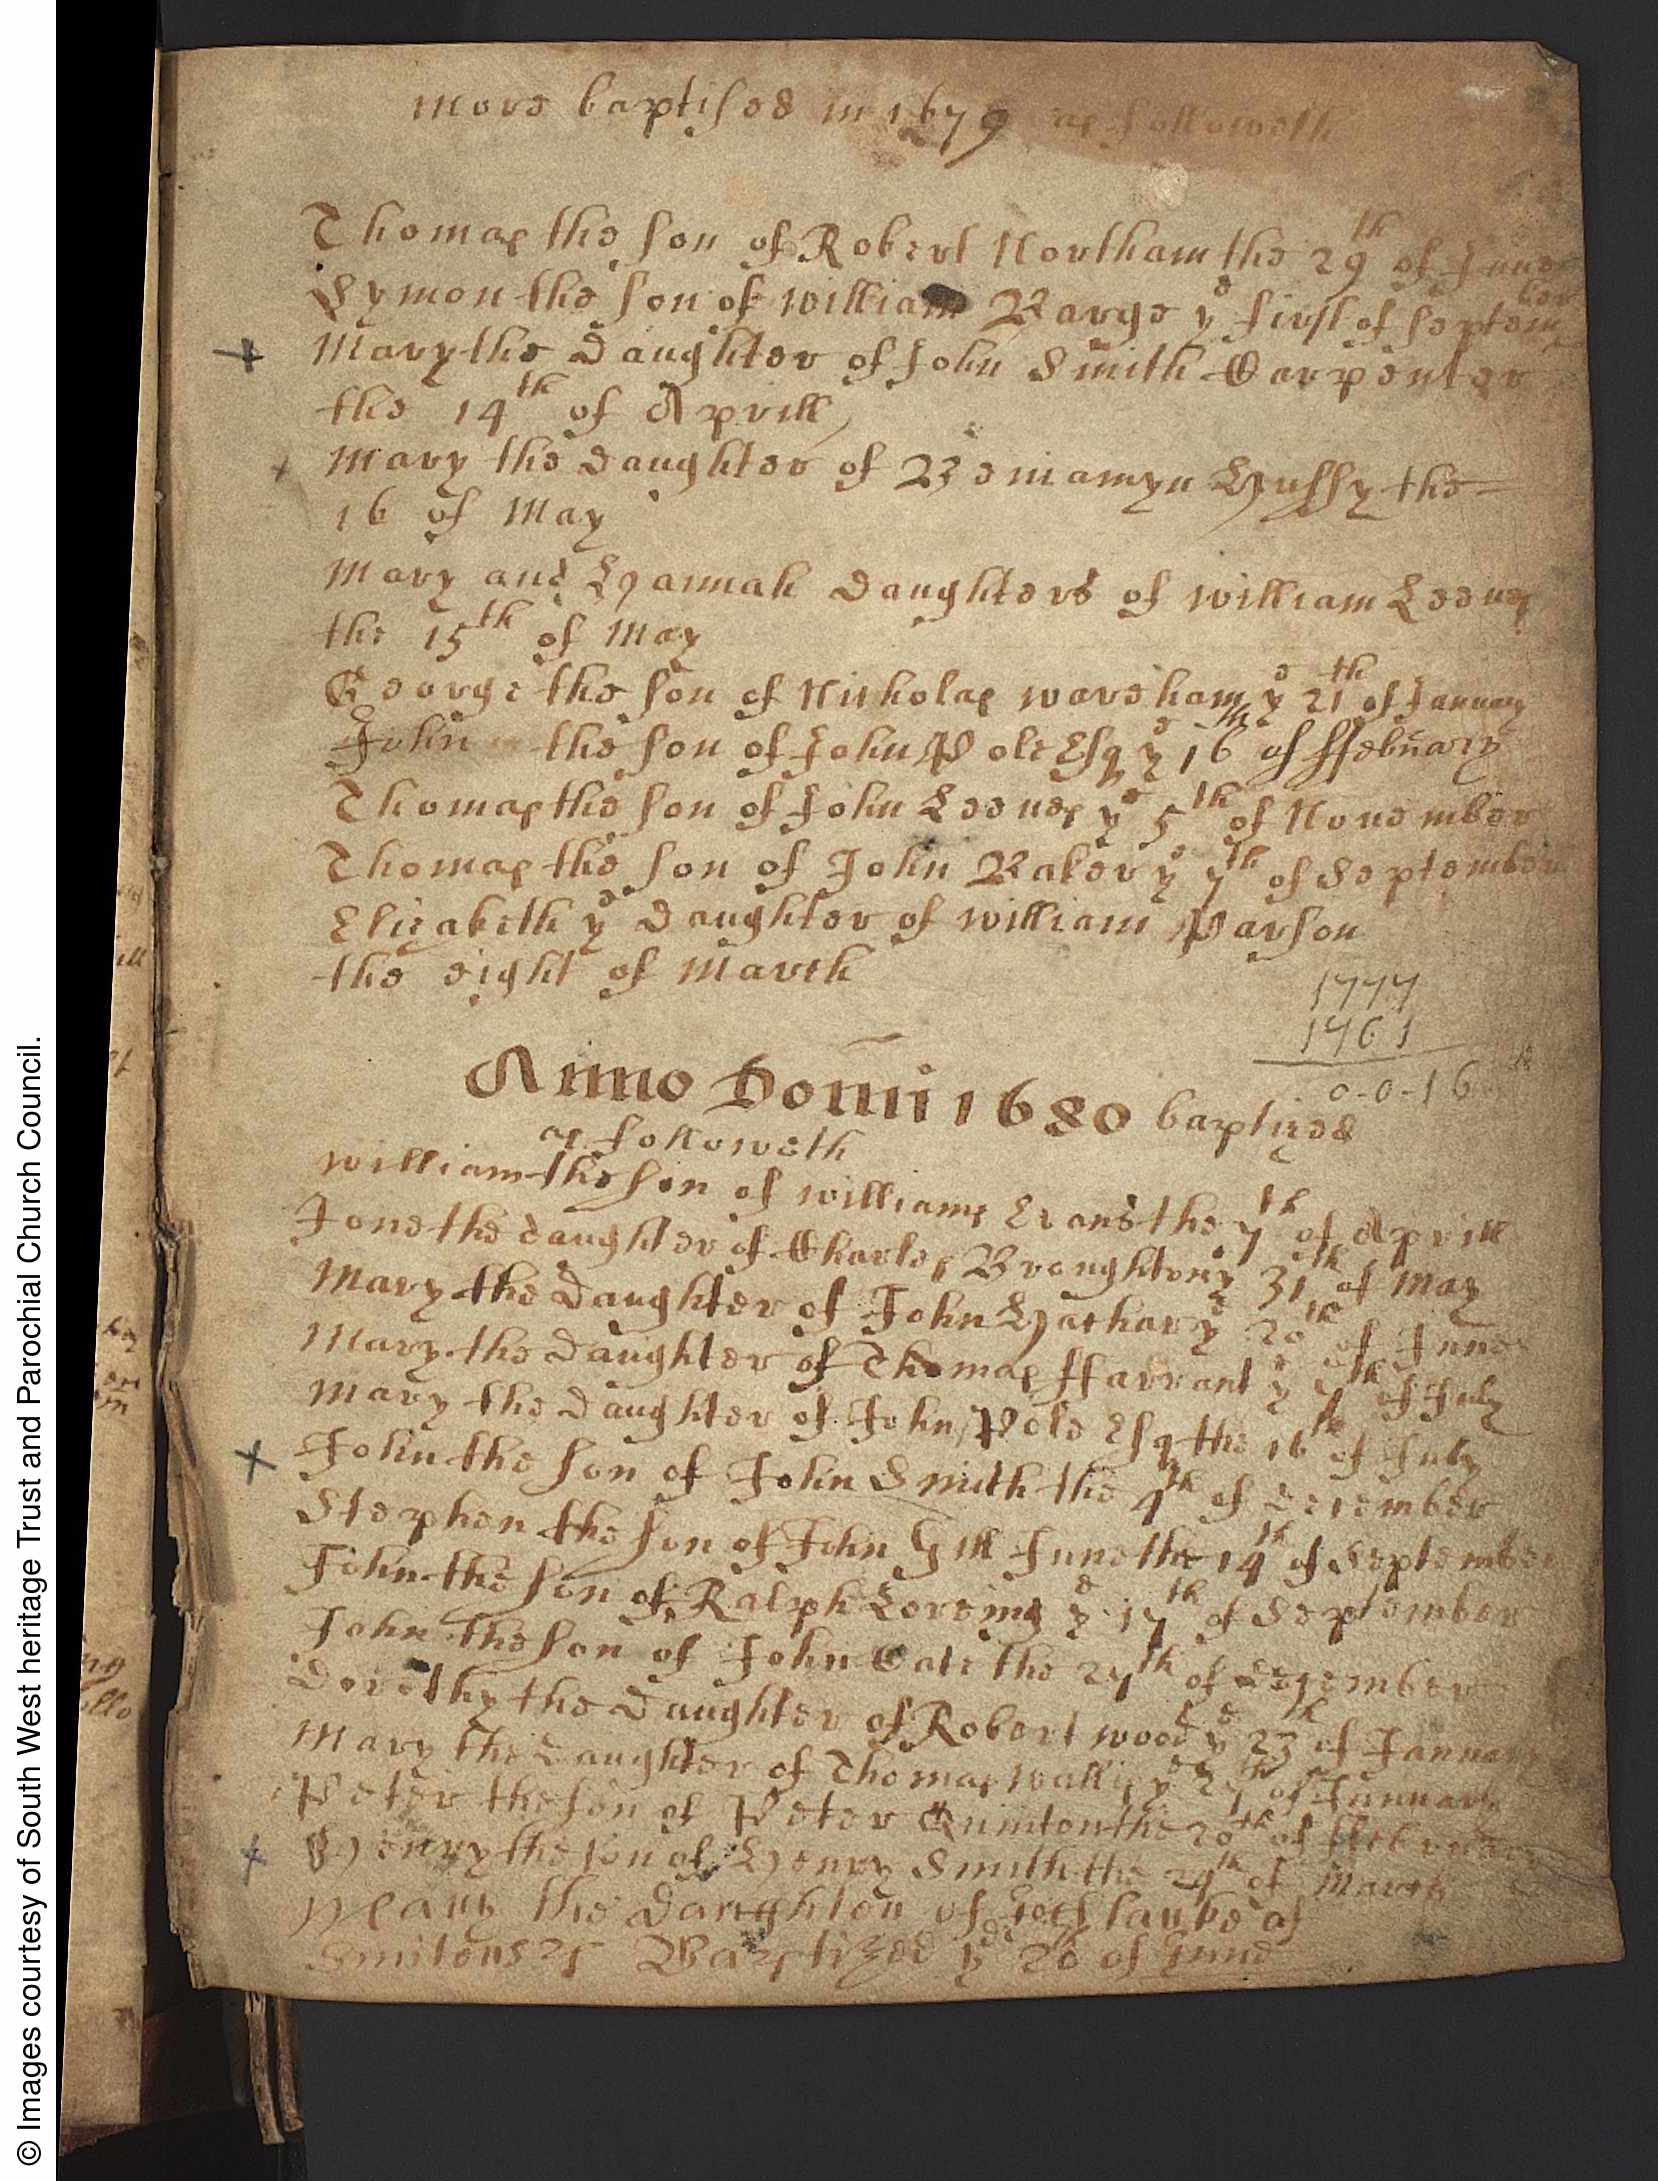 more baptised in 1679 as followeth
Thomas the son of Robert Northam the 29th of June
Symon the son of william Barge ye first of September
Mary the Daughter of John Smith Carpenter
the 14th of Aprill
Mary the daughter of Beniamyn Hussy the
16 of May
Mary and Hannah daughters of william Leeues
the 15th of May
George the son of Nicholas wareham ye 21th of January
John the son of John Pole Esq ye 16th of ffebruary
Thomas the son of John Leeues ye 5th of Nouember
Thomas the son of John Baker ye 7th of September
Elizabeth ye Daughter of william Parson
the eight of March
1777
1761
0-0-16
Anno Domi 1680 baptized
as followeth
william the son of williams Evans the 7th of Aprill
Jone the daughter of Charles Broughton ye 31th of May
Mary the Daughter of John Hathar ye 20th of June
Mary the Daughter of Thomas ffarrant ye 7th of July
Mary the Daughter of John Pole Esq the 16th of July
John the son of John Smith the 4th of december
Stephen the son of John Gill June the 14th of September
John the son of Ralph Loreing ye 17th of September
John the son of John Cate the 27th of december
Dorothy the Daughter of Robert wood ye 23th of January
Mary the Daughter of Thomas wallis ye 27th of January
Peter the son of Peter Quinton the 20th of ffebruary
Henry the son of Henry Smith the 24th of March
the Daughter of as
Baptized ye 20 of June
© Images courtesy of South West heritage Trust and Parochial Church Council.